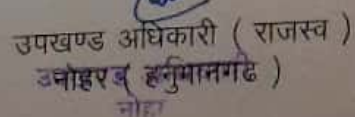 उपखण्ड अधिकारी ( राजस्व )
हनुमानगढ )
नोहर